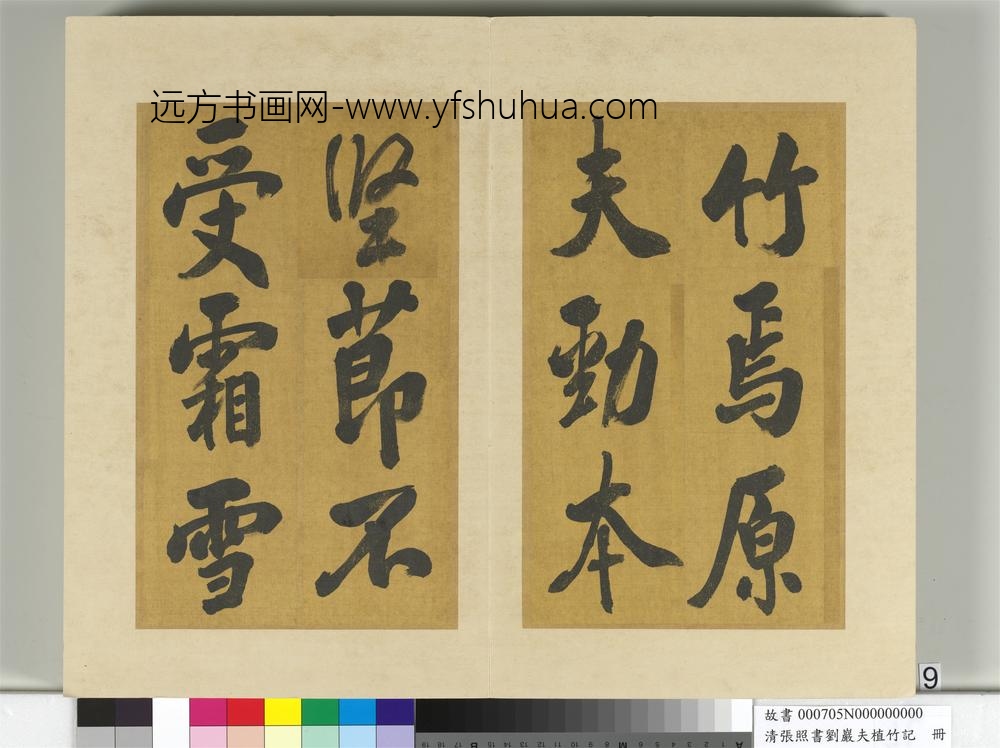 远方书画网-www.yfshuhua.com
竹焉原
夫勁本
坚莭不
受霜雪
9
故書 000705N000000000
清張照書劉巖夫植竹記 冊